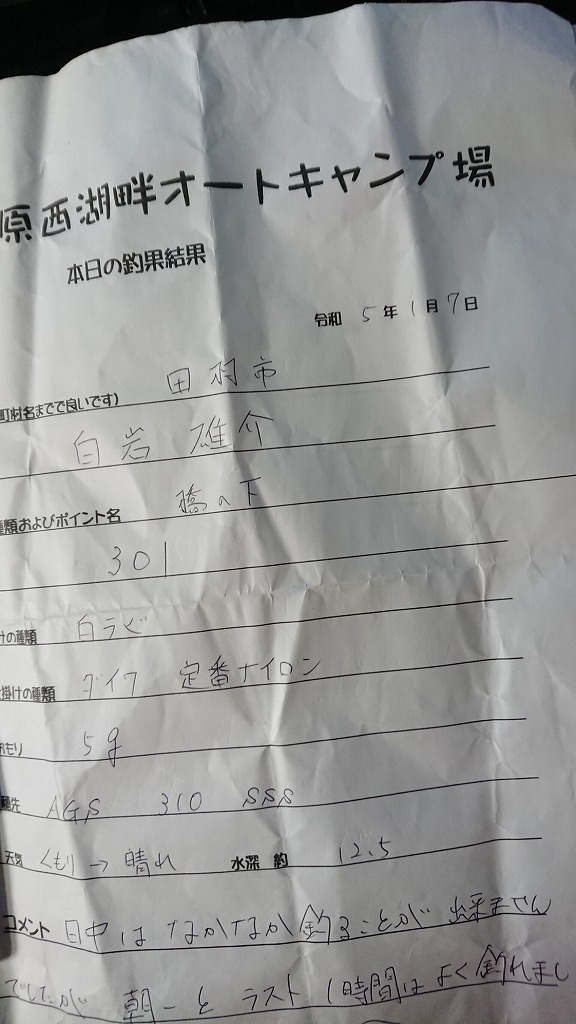 原西湖畔オートキャンプ場
本日の釣果結果
令和 5年 1月 7日
町村名までで良いです) 田村市
白岩 雄介
種類およびポイント名 橋の下
301
けの種類 白ラビ
掛けの種類 ダイワ 定番ナイロン
おもり 5g
穂先 AGS 310 SSS
天気 くもり→晴れ 水深 約 12.5
コメント 日中はなかなか釣ることが出来ません
でしたが 朝一とラスト1時間はよく釣れまし